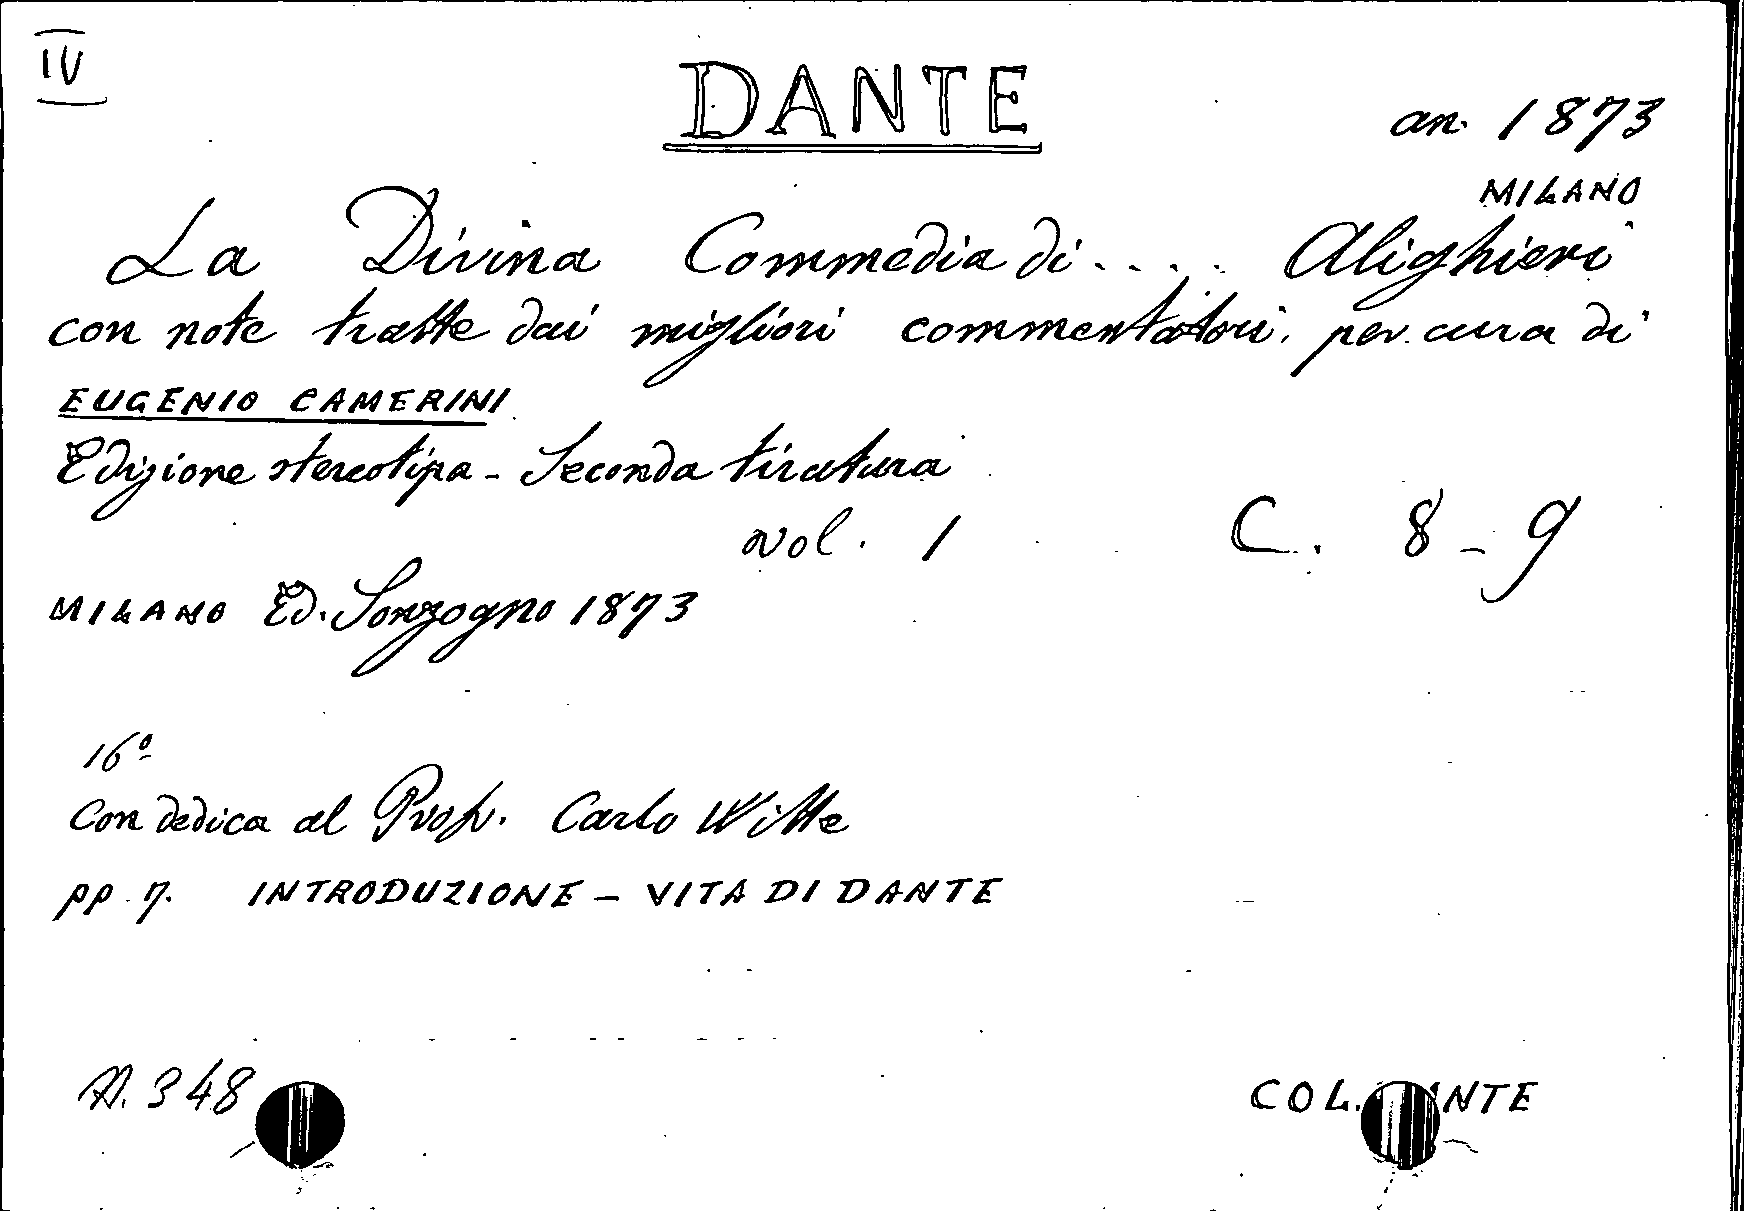 IV
DANTE
an. 1873
MILANO
La Divina Commedia di .... Alighieri
con note tratte dai migliori commentatori. per cura di
EUGENIO CAMERINI
Edizione stereotipa - Seconda tiratura
vol. 1
C. 8-9
MILANO Ed. Sonzogno 1873
16º
Con dedica al Prof. Carlo Witte
pp. 7. INTRODUZIONE - VITA DI DANTE
A. 348
COL.